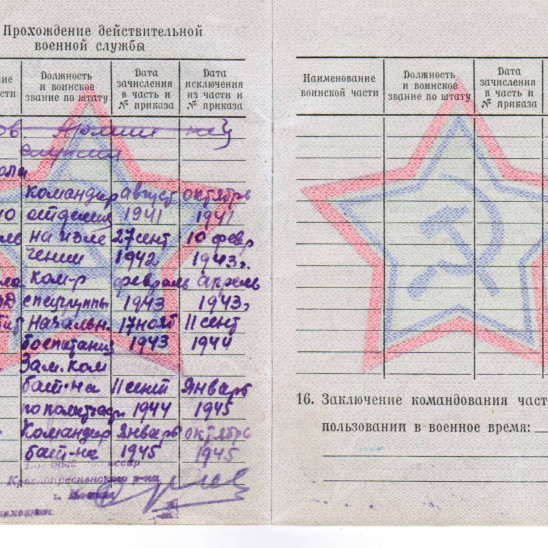 Прохождение действительной
военной службы
ние
сти
Должность
и воинское
звание по штату
Дата
зачисления
в часть и
№ приказа
Дата
исключения
из части и
№ приказа
ов Армии на
командир август октябрь
отделения 1941 1941
на изле 27 сент 10 февр
чении 1942 1943 г.
ком-р февраль апрель
спецгруппы 1943 1943 г
Начальн. 17 нояб 11 сент
воспитания 1943 1944
Зам. ком
бат-на 11 сент Январь
по политчаси 1944 1945
Командир Январь октябрь
бат-на 1945 1945
Краснопресненского р-на
г. Москвы
Наименование
воинской части
Должность
и воинское
звание по штату
Дата
зачисления
в часть и
№ приказа
16. Заключение командования част
пользовании в военное время: